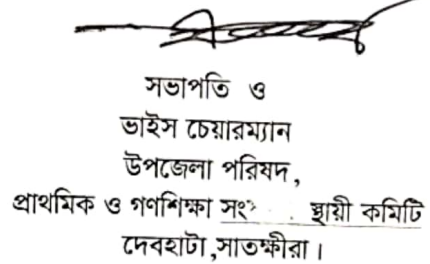 সভাপতি ও
ভাইস চেয়ারম্যান
উপজেলা পরিষদ,
প্রাথমিক ও গণশিক্ষা স্থায়ী কমিটি
দেবহাটা,সাতক্ষীরা।